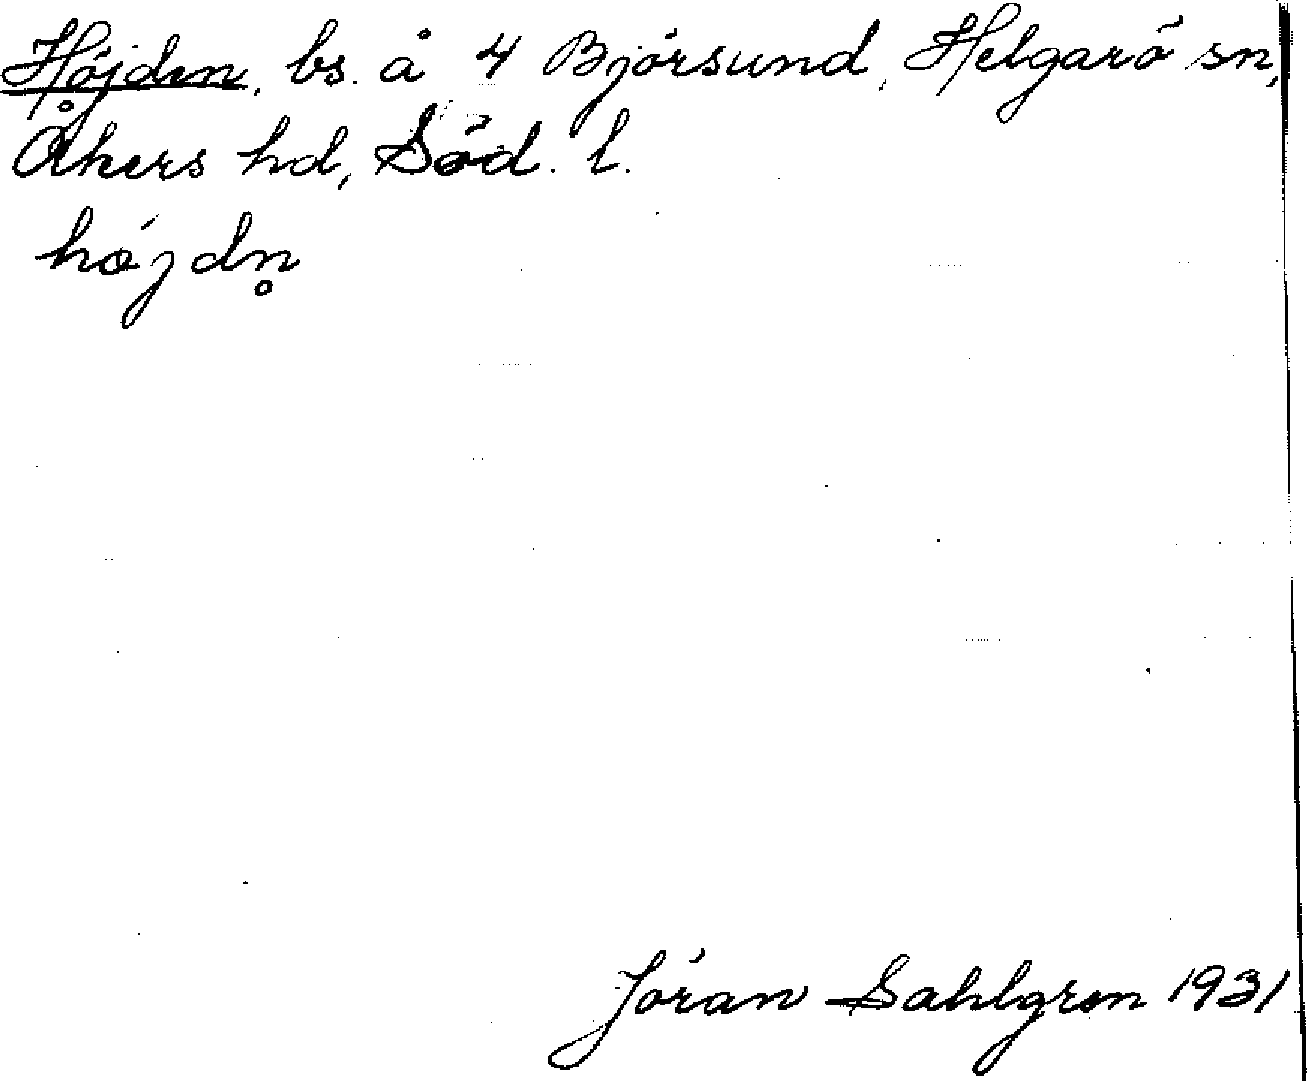 Höjden, bs. å 4 Björsund, Helgarö sn,
Åkers hd, Söd. l.
höjdn̥
Jöran Sahlgren 1931